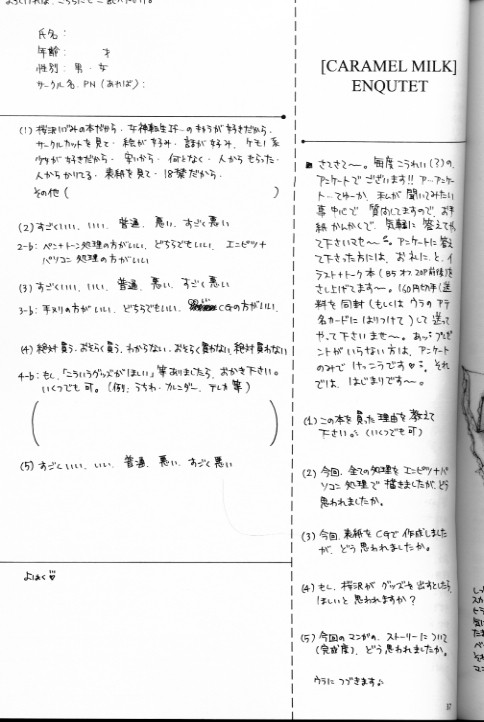 氏名:
年齢: 才
性別: 男・女
サークル名.PN(あれば):
(1) 桜沢いづみの本だから・女神転生if…のキャラが好きだから・
サークルカットを見て・絵が好み・話が好み・ケモノ系
少女が好きだから・安いから・何となく・人からもらった・
人からかりてる・表紙を見て・18禁だから・
その他(
(2) すごくいい、いい、普通、悪い、すごく悪い
2-b: ペン+トーン処理の方がいい、どちらでもいい、エンピツ+
パソコン処理の方がいい
(3) すごくいい、いい、普通、悪い、すごく悪い
3-b: 手ヌリの方がいい、どちらでもいい、CGの方がいい、
(4) 絶対買う、おそらく買う、わからない、おそらく買わない、絶対買わない
4-b: もし、「こういうグッズがほしい」等ありましたら、おかき下さい。
いくつでも可。(例: うちわ・カレンダー、テレカ等)
(5) すごくいい、いい、普通、悪い、すごく悪い
よはく♡
[CARAMEL MILK]
ENQUTET
さてさて〜。毎度こうれい(?)の、
アンケートでございます!!ア…アンケー
ト…てゆーか、私が聞いてみたい
事中心で質問してますので、お手
紙かんかくで、気軽に答えてやっ
て下さいませ〜。アンケートに答え
て下さった方には、お礼に、と、イ
ラスト+トーク本(B5オフ.20P前後)を
さし上げてます〜。160円切手(送
料を同封(もしくはウラのアテ
名カードにはりつけて)して送って
やって下さいませ〜。あっ…プレゼ
ントがいらない方は、アンケート
のみでけっこうです♡。それ
では、はじまりです〜。
(1) この本を買った理由を教えて
下さい。(いくつでも可)
(2) 今回、全ての処理をエンピツ+パ
ソコン処理で描きましたが、どう
思われましたか。
(3) 今回、表紙をCGで作成しました
が、どう思われましたか。
(4) もし、桜沢がグッズを出すとしたら、
ほしいと思われますか?
(5) 今回のマンガの、ストーリーについて
(完成度)、どう思われましたか。
ウラにつづきます♪
37